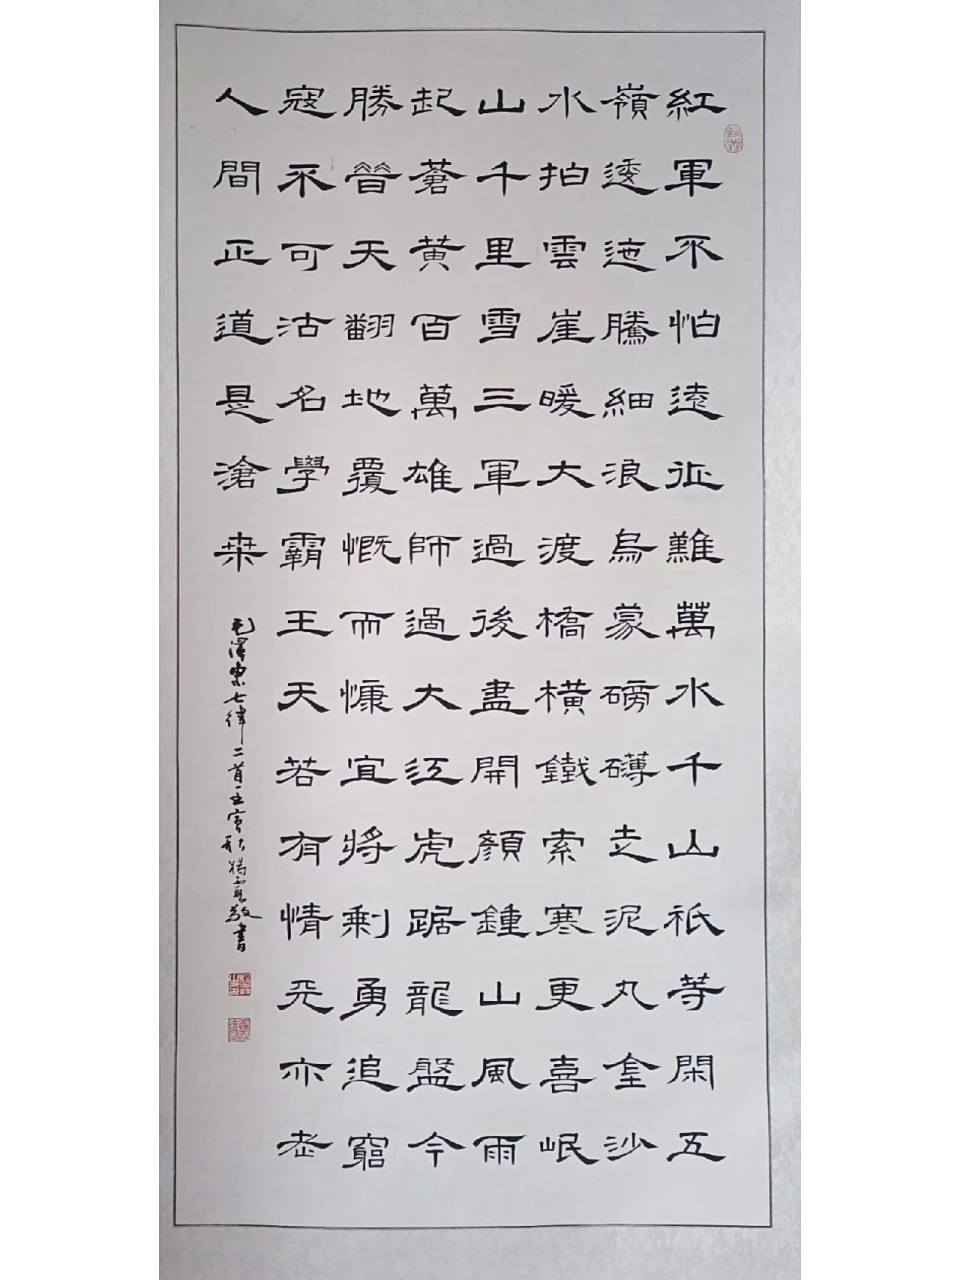 紅軍不怕遠征難萬水千山祇等閑五
嶺逶迤騰細浪烏蒙磅礴走泥丸金沙
水拍雲崖暖大渡橋橫鐵索寒更喜岷
山千里雪三軍過後盡開顏鍾山風雨
起蒼黃百萬雄師過大江虎踞龍盤今
勝昔天翻地覆慨而慷宜將剩勇追窮
寇不可沽名學霸王天若有情天亦老
人間正道是滄桑
毛澤東七律二首壬寅秋楊敬書